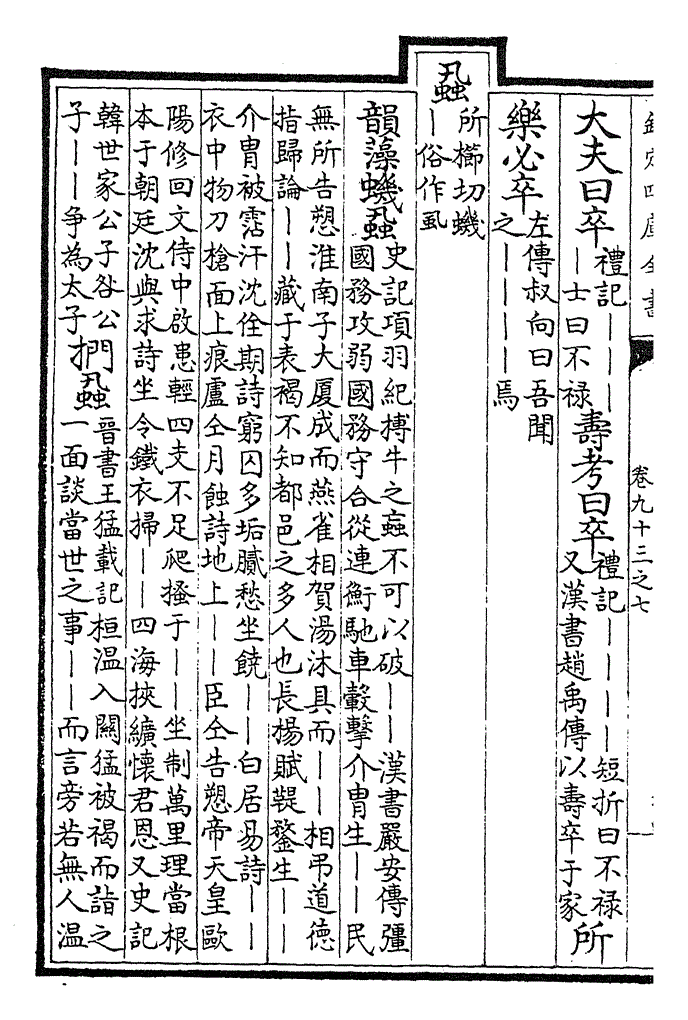 欽定四庫全書
卷九十三之七
大夫曰卒
禮記｜｜｜
｜士曰不禄
壽考曰卒
禮記｜｜｜｜短折曰不禄
又漢書趙禹傳以壽卒于家
所
樂必卒
左傳叔向曰吾聞
之｜｜｜｜焉
蝨
所櫛切蟣
｜俗作虱
韻藻蟣蝨
史記項羽紀搏牛之蝱不可以破｜｜漢書嚴安傳彊
國務攻弱國務守合從連衡馳車轂擊介冑生｜｜民
無所告愬淮南子大厦成而燕雀相賀湯沐具而｜｜相弔道德
指歸論｜｜藏于表褐不知都邑之多人也長楊賦鞮鍪生｜｜
介冑被霑汗沈佺期詩窮囚多垢膩愁坐饒｜｜白居易詩｜｜
衣中物刀槍面上痕盧仝月蝕詩地上｜｜臣仝告愬帝天皇歐
陽修回文侍中啟患輕四支不足爬搔于｜｜坐制萬里理當根
本于朝廷沈與求詩坐令鐵衣掃｜｜四海挾纊懷君恩又史記
韓世家公子咎公
子｜｜爭為太子
捫蝨
晉書王猛載記桓温入關猛被褐而詣之
一面談當世之事｜｜而言旁若無人温